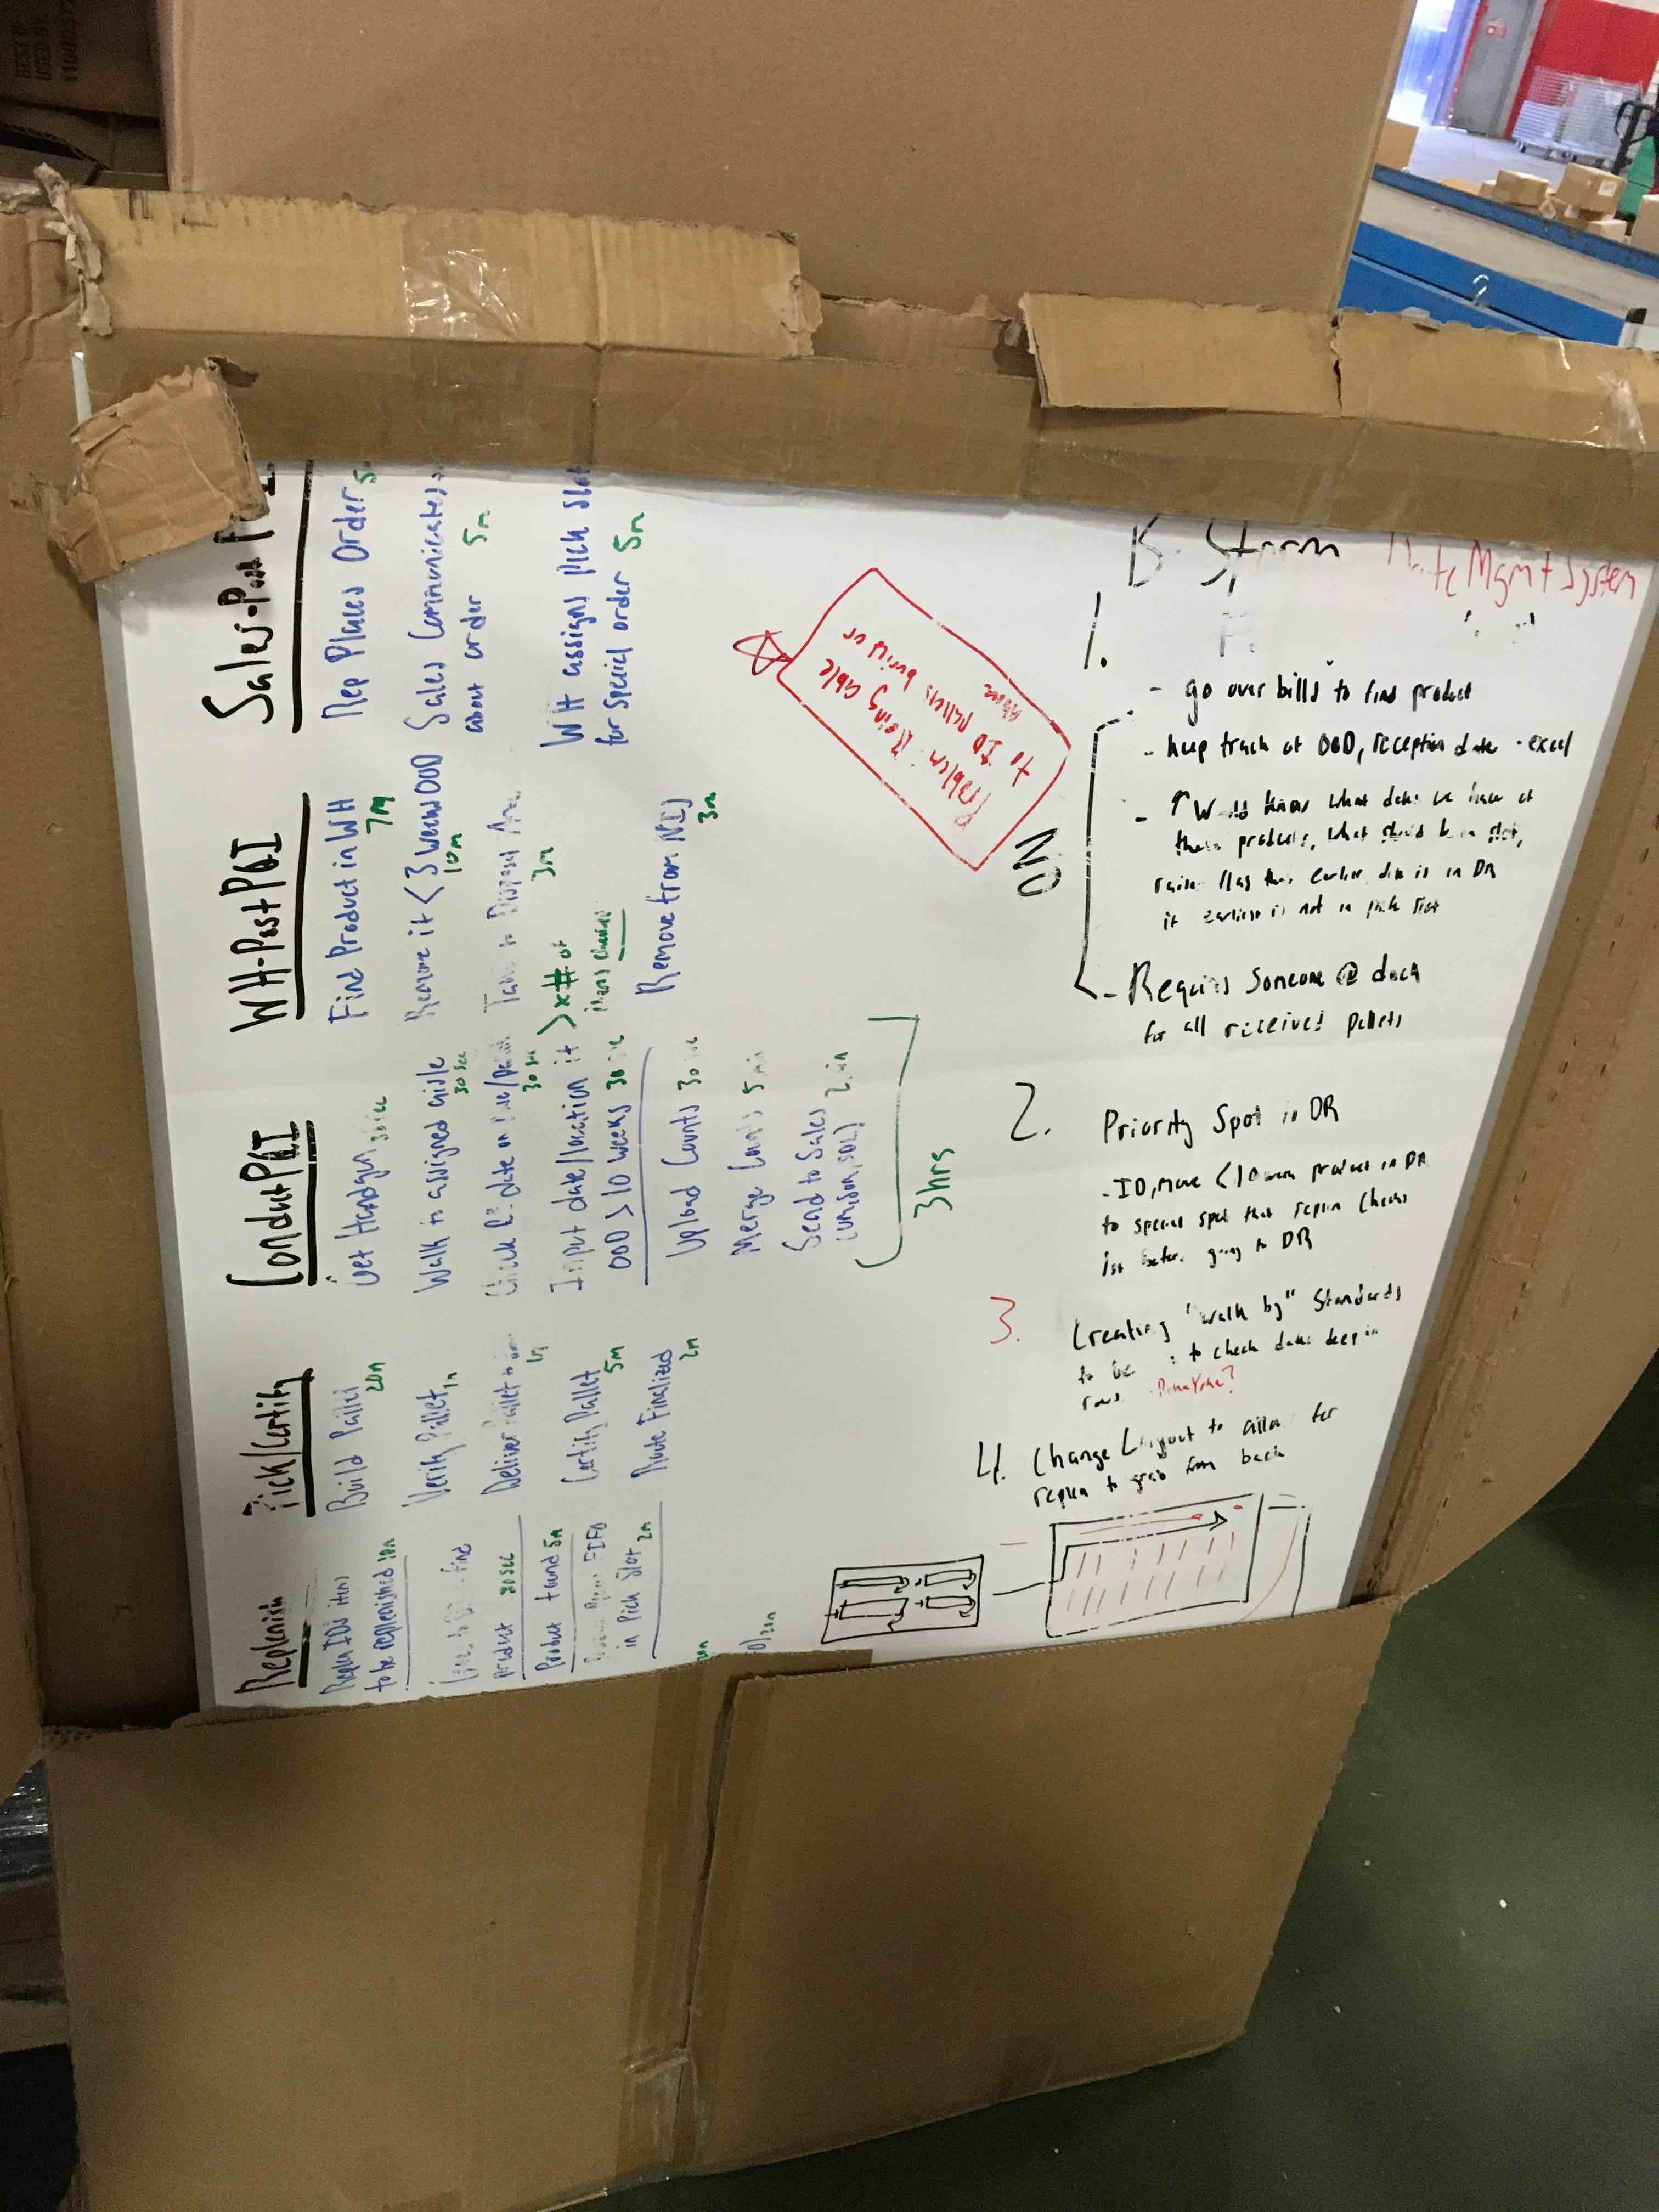 Replenish
Replen ID's items
to be replenished 10m
find
product 30sec
Product found 5m
FIFO
in Pick Slot 2m
Pick/Certify
Build Pallet
20m
Verify Pallet 1m
Deliver Pallet to
1m
Certify Pallet
5m
Route Finalized
2m
Conduct PQI
Get Handgun
Walk to assigned aisle
30 sec
Check date on
30 sec
Input date/location if
OOD > 10 weeks 30
Upload Counts 30
Merge Counts 5
Send to Sales
2
3hrs
> x # of
items
WH-Post PQI
Find Product in WH
7m
Remove if < 3 weeks OOD
10m
Take to Disposal
3m
Remove from
3m
Sales-Post
Rep Places Order
Sales Communicates
about order
5m
WH assigns pick slot
for special order
5m
Problem: Being able
to ID pallets buried or
B. Storm
Mgmt System
1.
- go over bills to find product
- keep track of OOD, reception date - excel
- ↑ Would know what dates we have of
these products, what should be in slot,
raise flag that earlier date is in DR
if earliest is not in pick slot
NO
- Requires Someone @ dock
for all received pallets
2. Priority Spot in DR
- ID, move < 10 week product in DR
to special spot that replen checks
1st before going to DR
3. Creating "walk by" Standards
to be to check dates deep in
rows
4. Change Layout to allow for
replen to grab from back